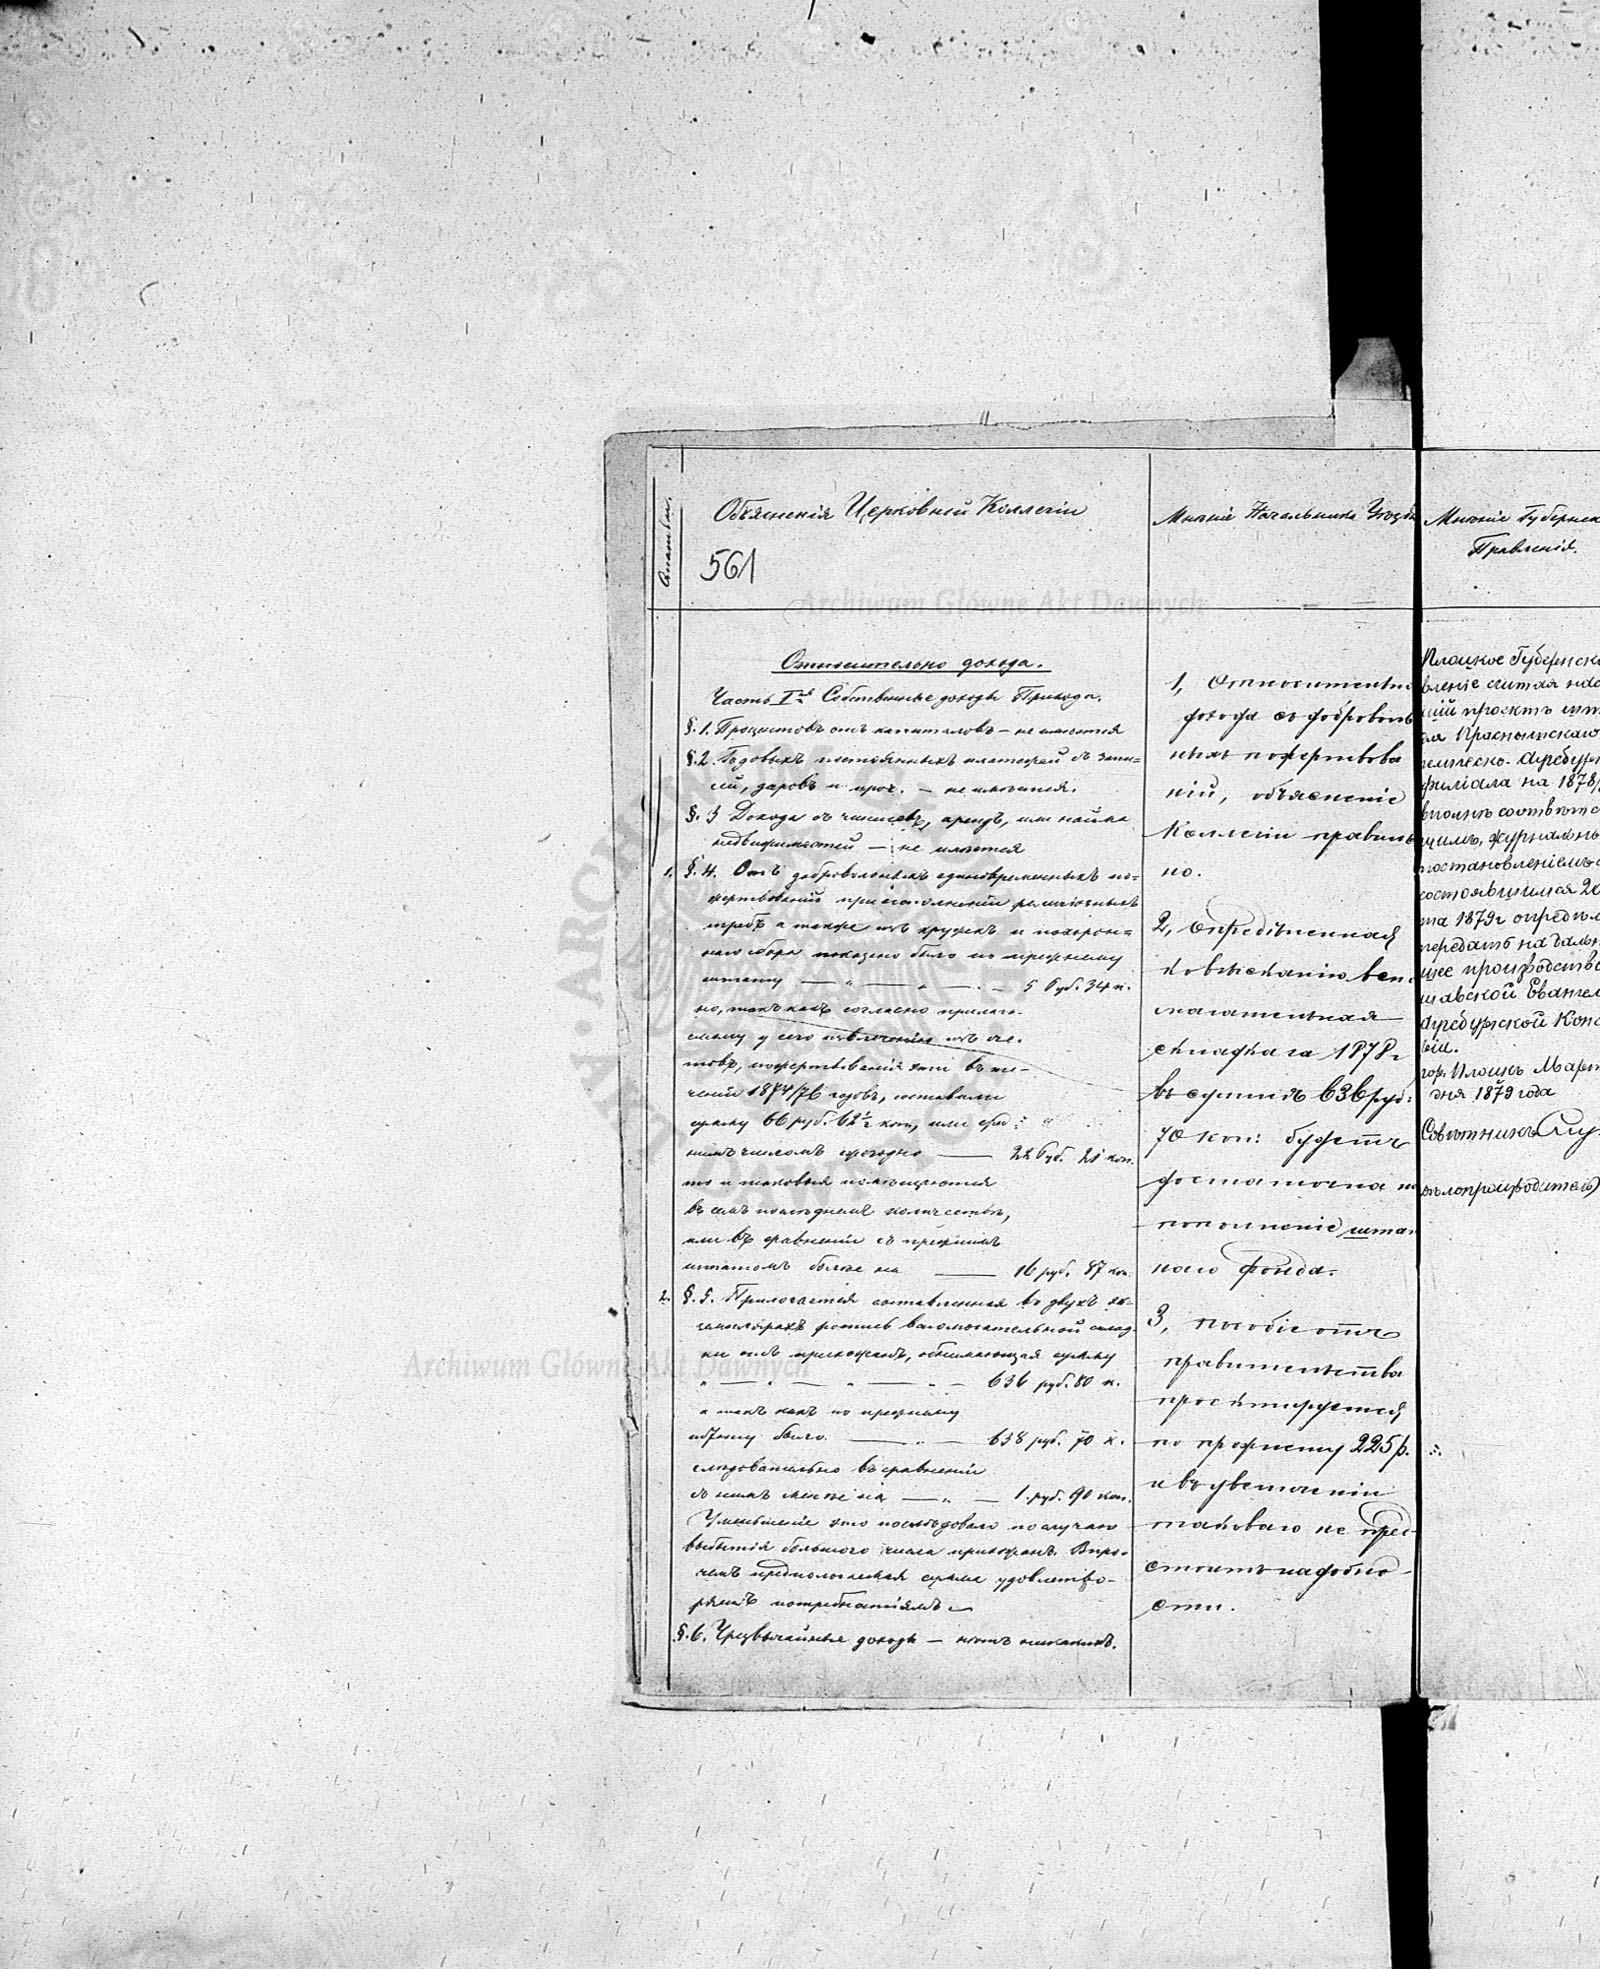 Статьи.
Объясненія Церковной Коллегіи
561
Относительно дохода.
Часть Iая Собственные доходы Прихода.
§. 1. Процентовъ отъ капиталовъ – не имѣется
§. 2. Годовыхъ постоянныхъ платежей съ запи-
сей, даровъ и проч. – не имѣется.
§. 3 Дохода съ чиншевъ, арендъ, или найма
недвижимостей – не имѣется
1. § 4. Отъ добровольныхъ единовременныхъ по-
жертвованій при исполненіи религіозныхъ
требъ а также изъ кружекъ и похорон-
наго сбора показано было по прежнему
штату — „ — „ — 5 Руб. 34 к.
но, такъ какъ согласно прилага-
емому у сего извлеченію изъ сче-
товъ, пожертвованія эти въ те-
ченіи 1874/76 годовъ, составили
сумму 66 руб. 62½ коп, или сред-
нимъ числомъ ежегодно — 22 Руб. 21 коп.
то и таковыя помѣщаются
въ семъ послѣднемъ количествѣ,
или въ сравненіи съ прежнимъ
штатомъ болѣе на — 16 руб. 87 коп.
2. §. 5. Прилагается составленная въ двухъ эк-
земплярахъ роспись вспомогательной склад-
ки отъ прихожанъ, обнимающая сумму
„ — „ — „ — „ — 636 руб. 80 к.
а такъ какъ по прежнему
штату было — „ — 638 руб. 70 к.
слѣдовательно въ сравненіи
съ нимъ менѣе на — „ — 1 руб. 90 коп.
Уменьшеніе это послѣдовало по случаю
выбытія большого числа прихожанъ. Впро-
чемъ предполагаемая сумма удовлетво-
ряетъ потребностямъ.
§. 6. Чрезвычайные доходы – нѣтъ никакихъ.
Мнѣніе Начальника Уѣзда
1, Относительно
дохода съ доброволь
ныхъ пожертвова
ній, объясненіе
Коллегіи правиль
но.
2, Опредѣленная
ко взысканію всп.
магательная
складка за 1878 г
въ суммѣ 636 руб:
70 коп: будетъ
достаточна на
пополненіе штат
наго фонда.
3, пособіе отъ
правительства
проэктируется
по прежнему 225 р.
и въ увеличеніи
таковаго не пред-
стоитъ надобно-
сти.
Мнѣніе Губернск
Правленія.
Плоцкое Губернско
вленіе считая нас
щій проектъ шта
для Праснышскаго
гелическо-Аугсбург
филіала на 1878/
вполнѣ соотвѣтс
щимъ, журнальн
постановленіемъ
состоявшимся 2
та 1879 г опредѣл
передать на даль
шее производство
шавской Евангел
Аугсбургской Конс
ріи.
гор. Плоцкъ Март
дня 1879 года
Совѣтникъ
дѣлопроизводитель
Archiwum Główne Akt Dawnych
Archiwum Główne Akt Dawnych